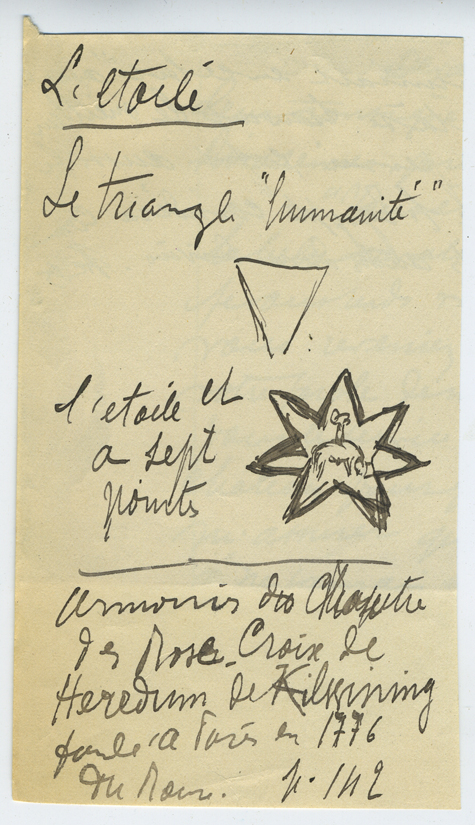 L'etoilé
Le triangle "humanité"
l'etoile et
a sept
points
armoiries du Chapitre
des Rose-Croix de
Heredum de Kilwining
fondé à Paris en 1776
Du p. 142